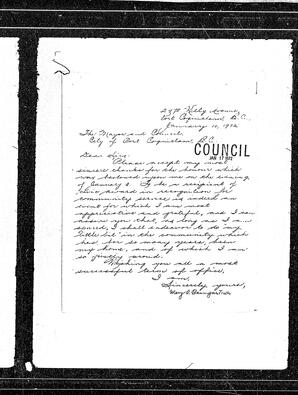 2374 Kelly Avenue,
Port Coquitlam, B.C.,
January 10, 1972
The Mayor and Council,
City of Port Coquitlam, B.C.
COUNCIL
JAN 17 1972
Dear Sirs:
Please accept my most
sincere thanks for the honour which
was bestowed upon me on the evening
of January 3. To be a recipient of
Civic Award in recognition for
community service is indeed an
event for which I am most
appreciative and grateful, and I can
assure you that, as long as I am
spared, I shall endeavor to do my
little bit in the community which
has, for so many years, been
my home, and of which I am
so justly proud.
Wishing you all a most
successful term of office,
I am,
Sincerely yours,
Mary